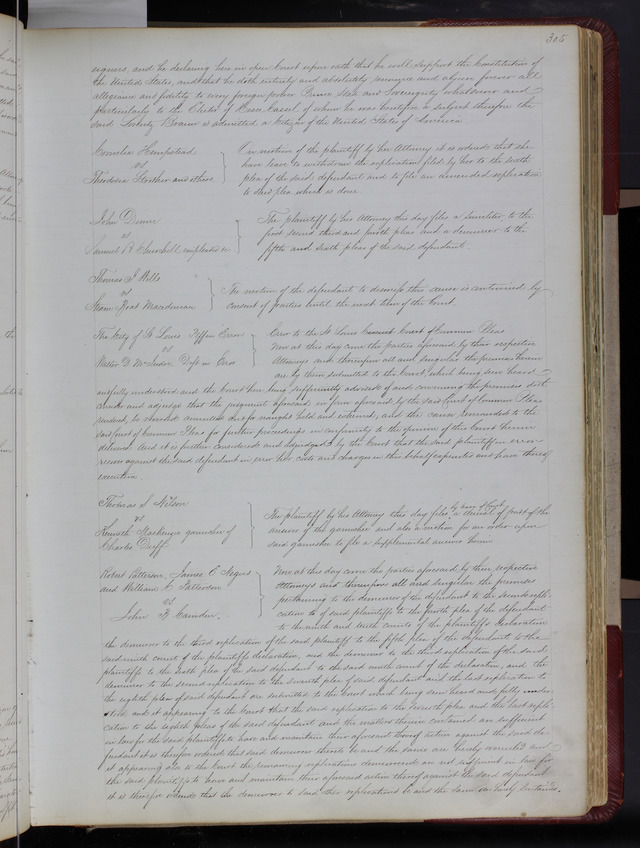 305
signers, and he declaring here in open Court upon oath that he will support the Constitution of
the United States, and that he doth entirely and absolutely renounce and abjure forever all
allegiance and fidelity to every foreign power Prince State and Sovereignty whatsoever and
particularly to the Elector of Hesse Cassel of whom he was heretofore a subject therefore the
said is admitted a Citizen of the United States of America
Cornelia Hempstead
vs
Theodosia Strother and others
On motion of the plaintiff by her Attorney it is ordered that she
have leave to withdraw the replication filed by her to the sixth
plea of the said defendant and to file an amended replication
to said plea which is done
John Dunn
vs
Samuel B Churchill impleaded &c
The plaintiff by his Attorney this day files a similiter to the
first second third and fourth pleas and a demurrer to the
fifth and sixth pleas of the said defendant.
Thomas J Wills
vs
Steam Boat Macedonian
The motion of the defendant to dismiss this cause is continued by
consent of parties until the next term of the Court
The City of St Louis Plff in Error
vs
Walter D McAdoo Deft in Error
Error to the St Louis Court of Common Pleas
Now at this day come the parties aforesaid by their respective
Attorneys and thereupon all and singular the premises herein
are by them submitted to the Court which being seen heard
and fully understood and the Court here being sufficiently advised of and concerning the premises doth
consider and adjudge that the judgment aforesaid in form aforesaid by the said Court of Common Pleas
rendered, be reversed annulled and for naught held and esteemed, and the cause remanded to the
said Court of Common Pleas for further proceedings in conformity to the opinion of this Court herein
delivered. And it is further considered and adjudged by the Court that the said plaintiff in error
recover against the said defendant in error her costs and charges in this behalf expended and have thereof
execution.
Thomas S Nelson
vs
Kenneth Mackenzie garnishee of
Charles Duff
The plaintiff by his Attorney this day files a denial of part of the
answer of the garnishee and also a motion for an order upon
said garnishee to file a supplemental answer herein
Robert Patterson, James C. Magee
and William C Patterson
vs
John B Camden.
Now at this day come the parties aforesaid by their respective
Attorneys and thereupon all and singular the premises
pertaining to the demurrer of the defendant to the second repli-
cation to of said plaintiffs to the fourth plea of the defendant
to the ninth and tenth counts of the plaintiffs declaration
the demurrer to the third replication of the said plaintiff to the fifth plea of the defendant to the
said ninth count of the plaintiffs declaration, and the demurrer to the third replication of the said
plaintiffs to the sixth plea of the said defendant to the said ninth count of the declaration, and the
demurrer to the second replication to the seventh plea of said defendant and the last replication to
the eighth plea of said defendant are submitted to the Court which being seen heard and fully under-
stood and it appearing to the Court that the said replication to the seventh plea and the last repli-
cation to the eighth pleas of the said defendant and the matters therein contained are sufficient
in law for the said plaintiffs to have and maintain their aforesaid thereof action against the said de-
fendant it is therefore ordered that said demurrer thereto be and the same are hereby overruled and
it appearing also to the Court the remaining replications demurred are not sufficient in law for
the said plaintiffs to have and maintain their aforesaid action thereof against the said defendant
it is therefore ordered that the demurrers to said other replications be and the same are hereby sustained.